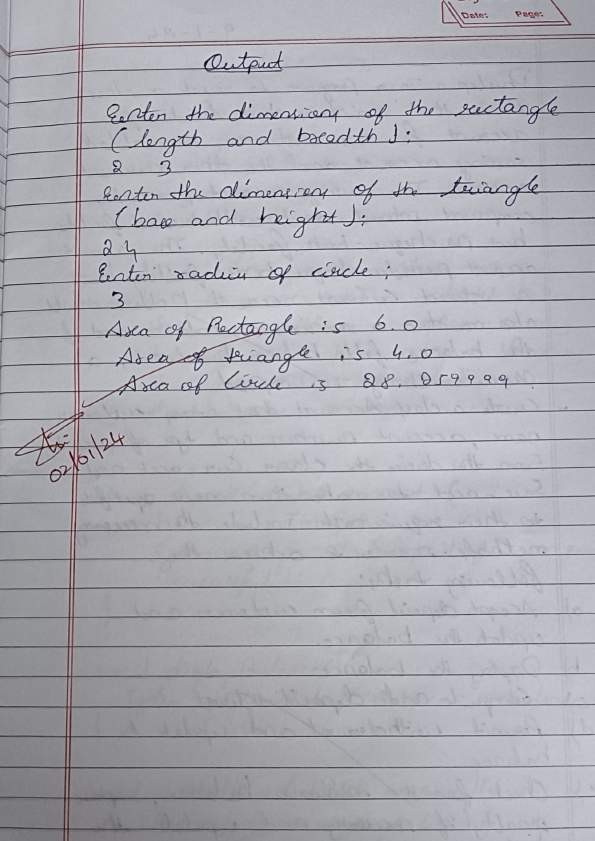 Date: Page:
Output
Enter the dimensions of the rectangle
(length and breadth):
2 3
Enter the dimensions of the triangle
(base and height):
2 4
Enter radius of circle:
3
Area of Rectangle is 6.0
Area of triangle is 4.0
Area of Circle is 28.259999
02/01/24